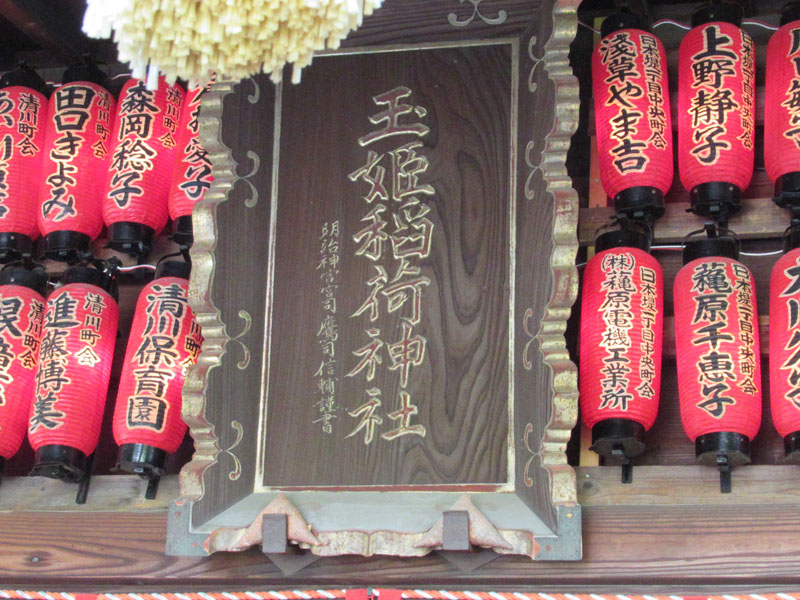 玉姫稲荷神社
明治神宮宮司鷹司信輔謹書
清川町会
田口きよみ
清川町会
森岡稔子
清川町会
日本堤一丁目中央町会
浅草やま吉
日本堤一丁目中央町会
上野静子
清川町会
進藤博美
清川町会
清川保育園
日本堤一丁目中央町会
㈱龝原電機工業所
日本堤一丁目中央町会
龝原千恵子